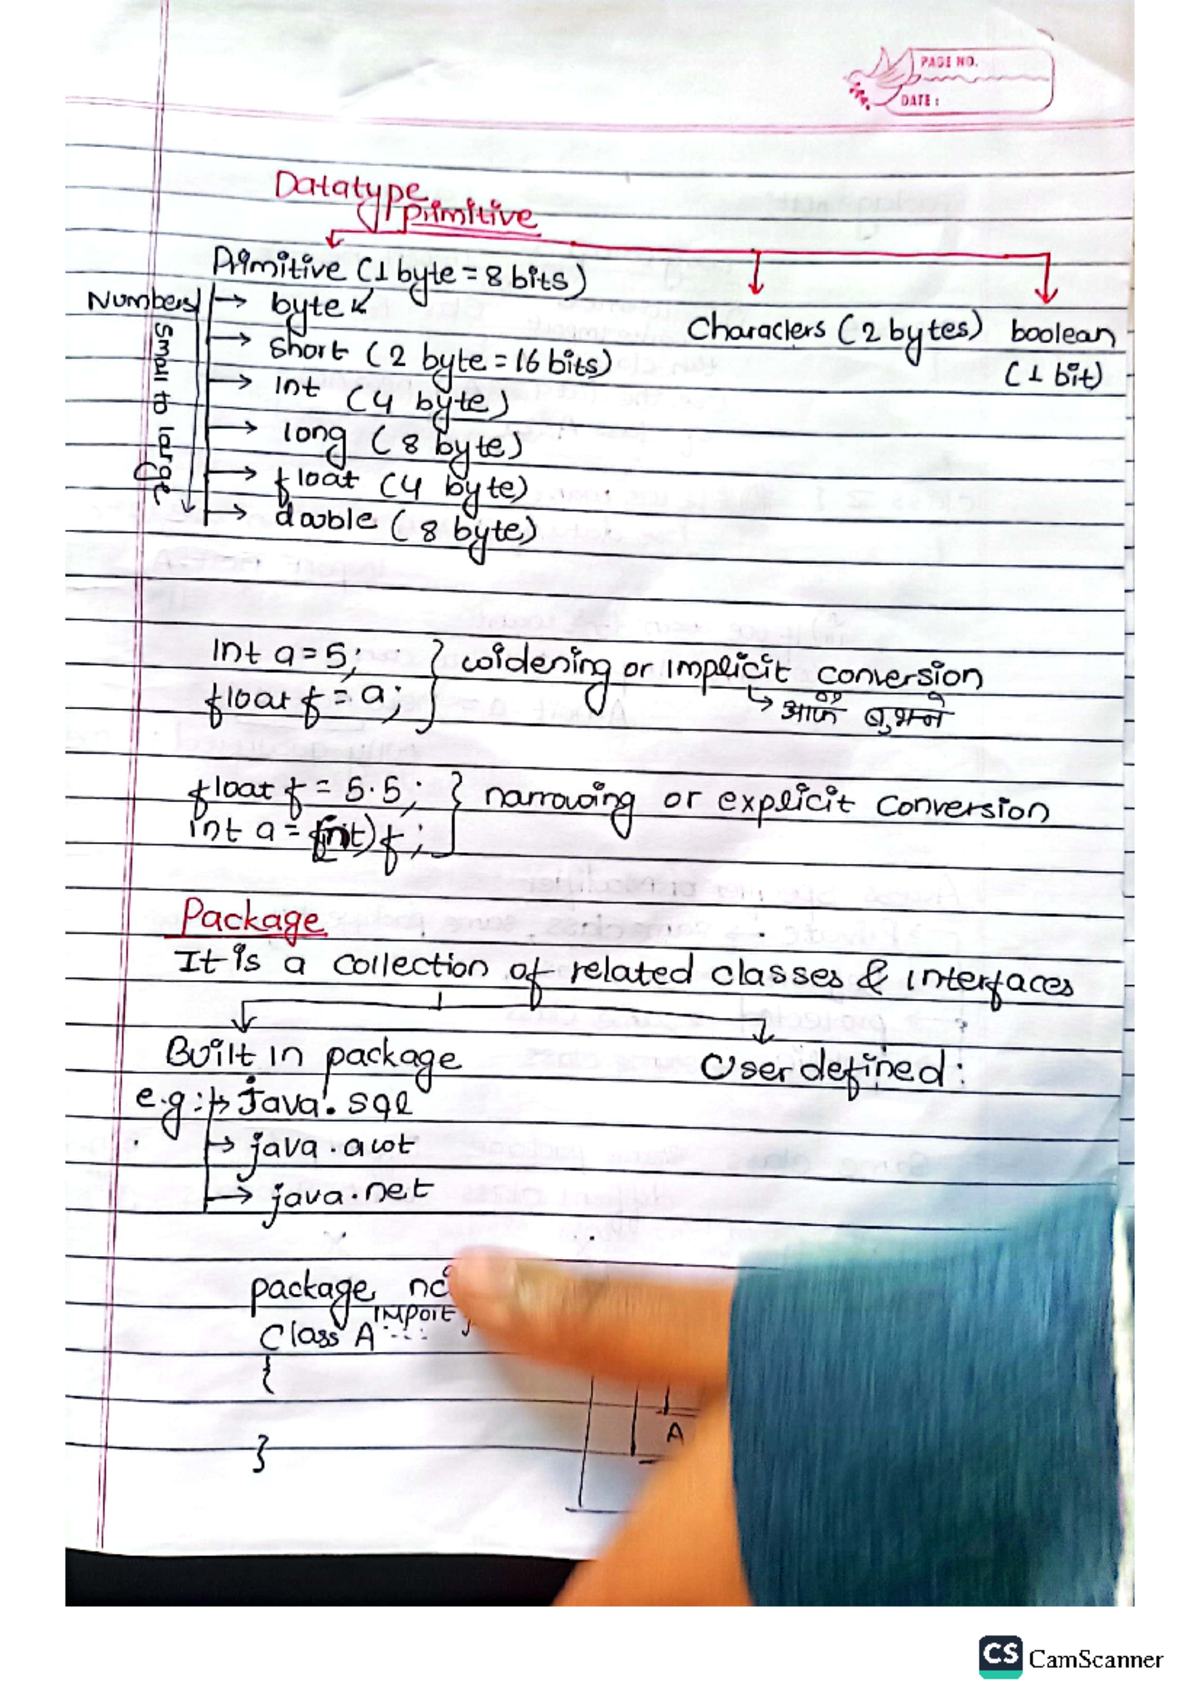 PAGE NO.
DATE :
Datatype
primitive
Primitive (1 byte = 8 bits)
Numbers → byte
Small to large
→ short (2 byte = 16 bits)
→ int (4 byte)
→ long (8 byte)
→ float (4 byte)
→ double (8 byte)
Characters (2 bytes)
boolean
(1 bit)
int a = 5; } widening or implicit conversion
float f = a;
float f = 5.5; } narrowing or explicit conversion
int a = (int) f ;
Package
It is a collection of related classes & interfaces
Built in package
User defined :
e.g : → java.sql
→ java.awt
→ java.net
package
import
Class A
{
}
A
CS CamScanner